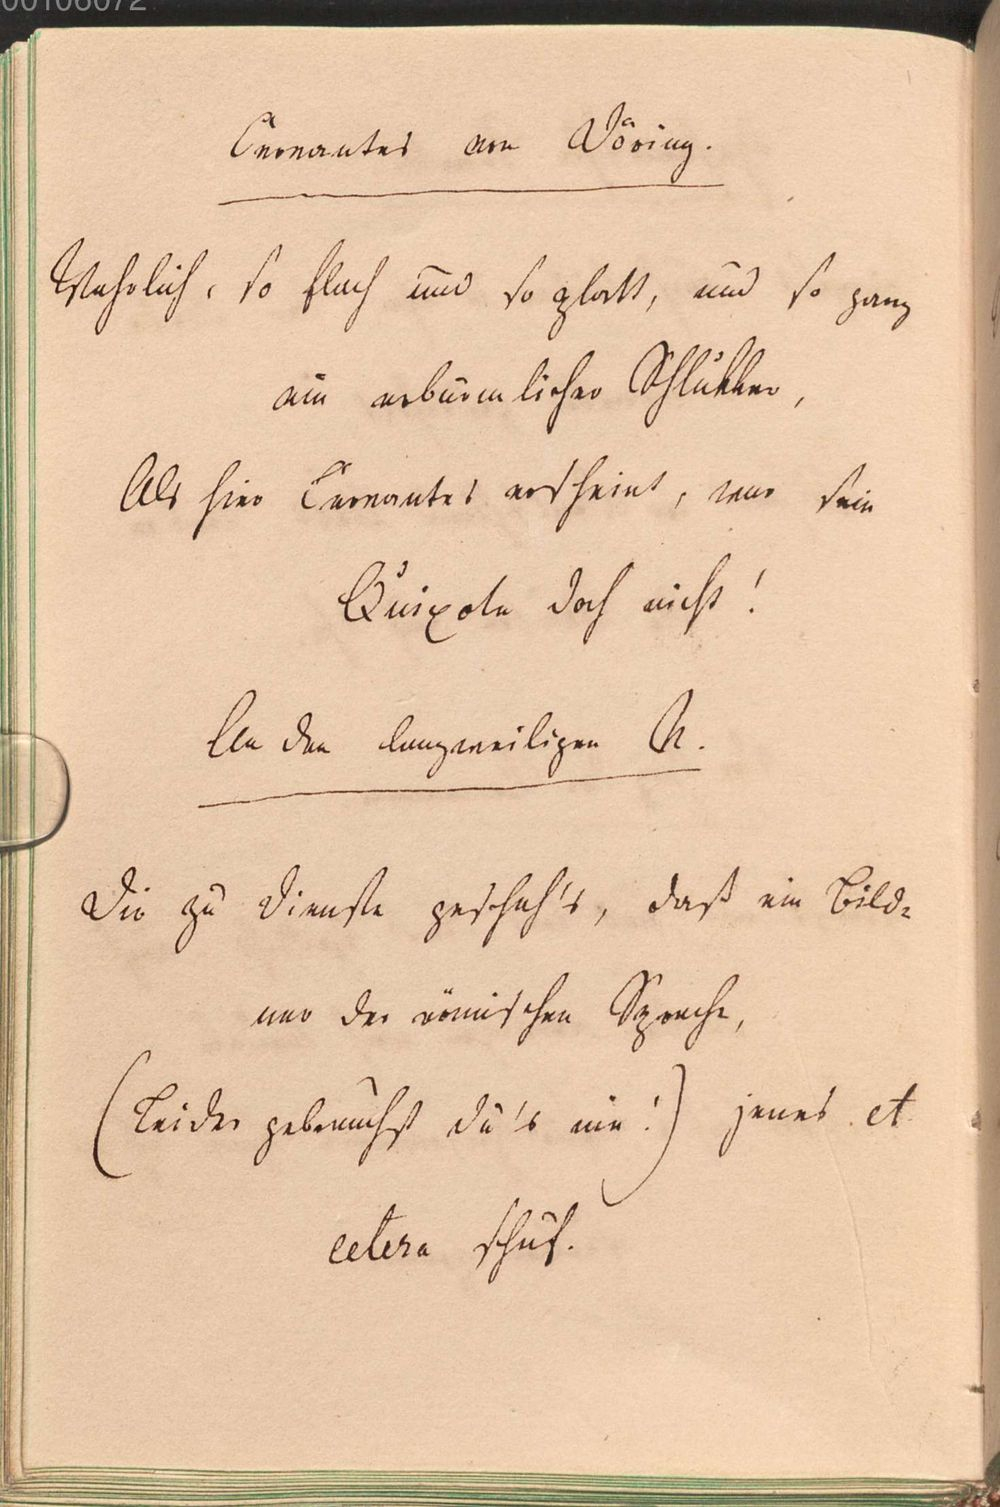 00106072
Cervantes von Döring.
Wahrlich, so flach und so glatt, und so ganz
ein erbärmlicher Schlukker,
Als hier Cervantes erscheint, war sein
Quixote doch nicht!
An den langweiligen N.
Dir zu Dienste geschah's, daß ein Bild-
ner der römischen Sprache,
(Leider gebrauchst du's nie!) jenes et
cetera schuf.